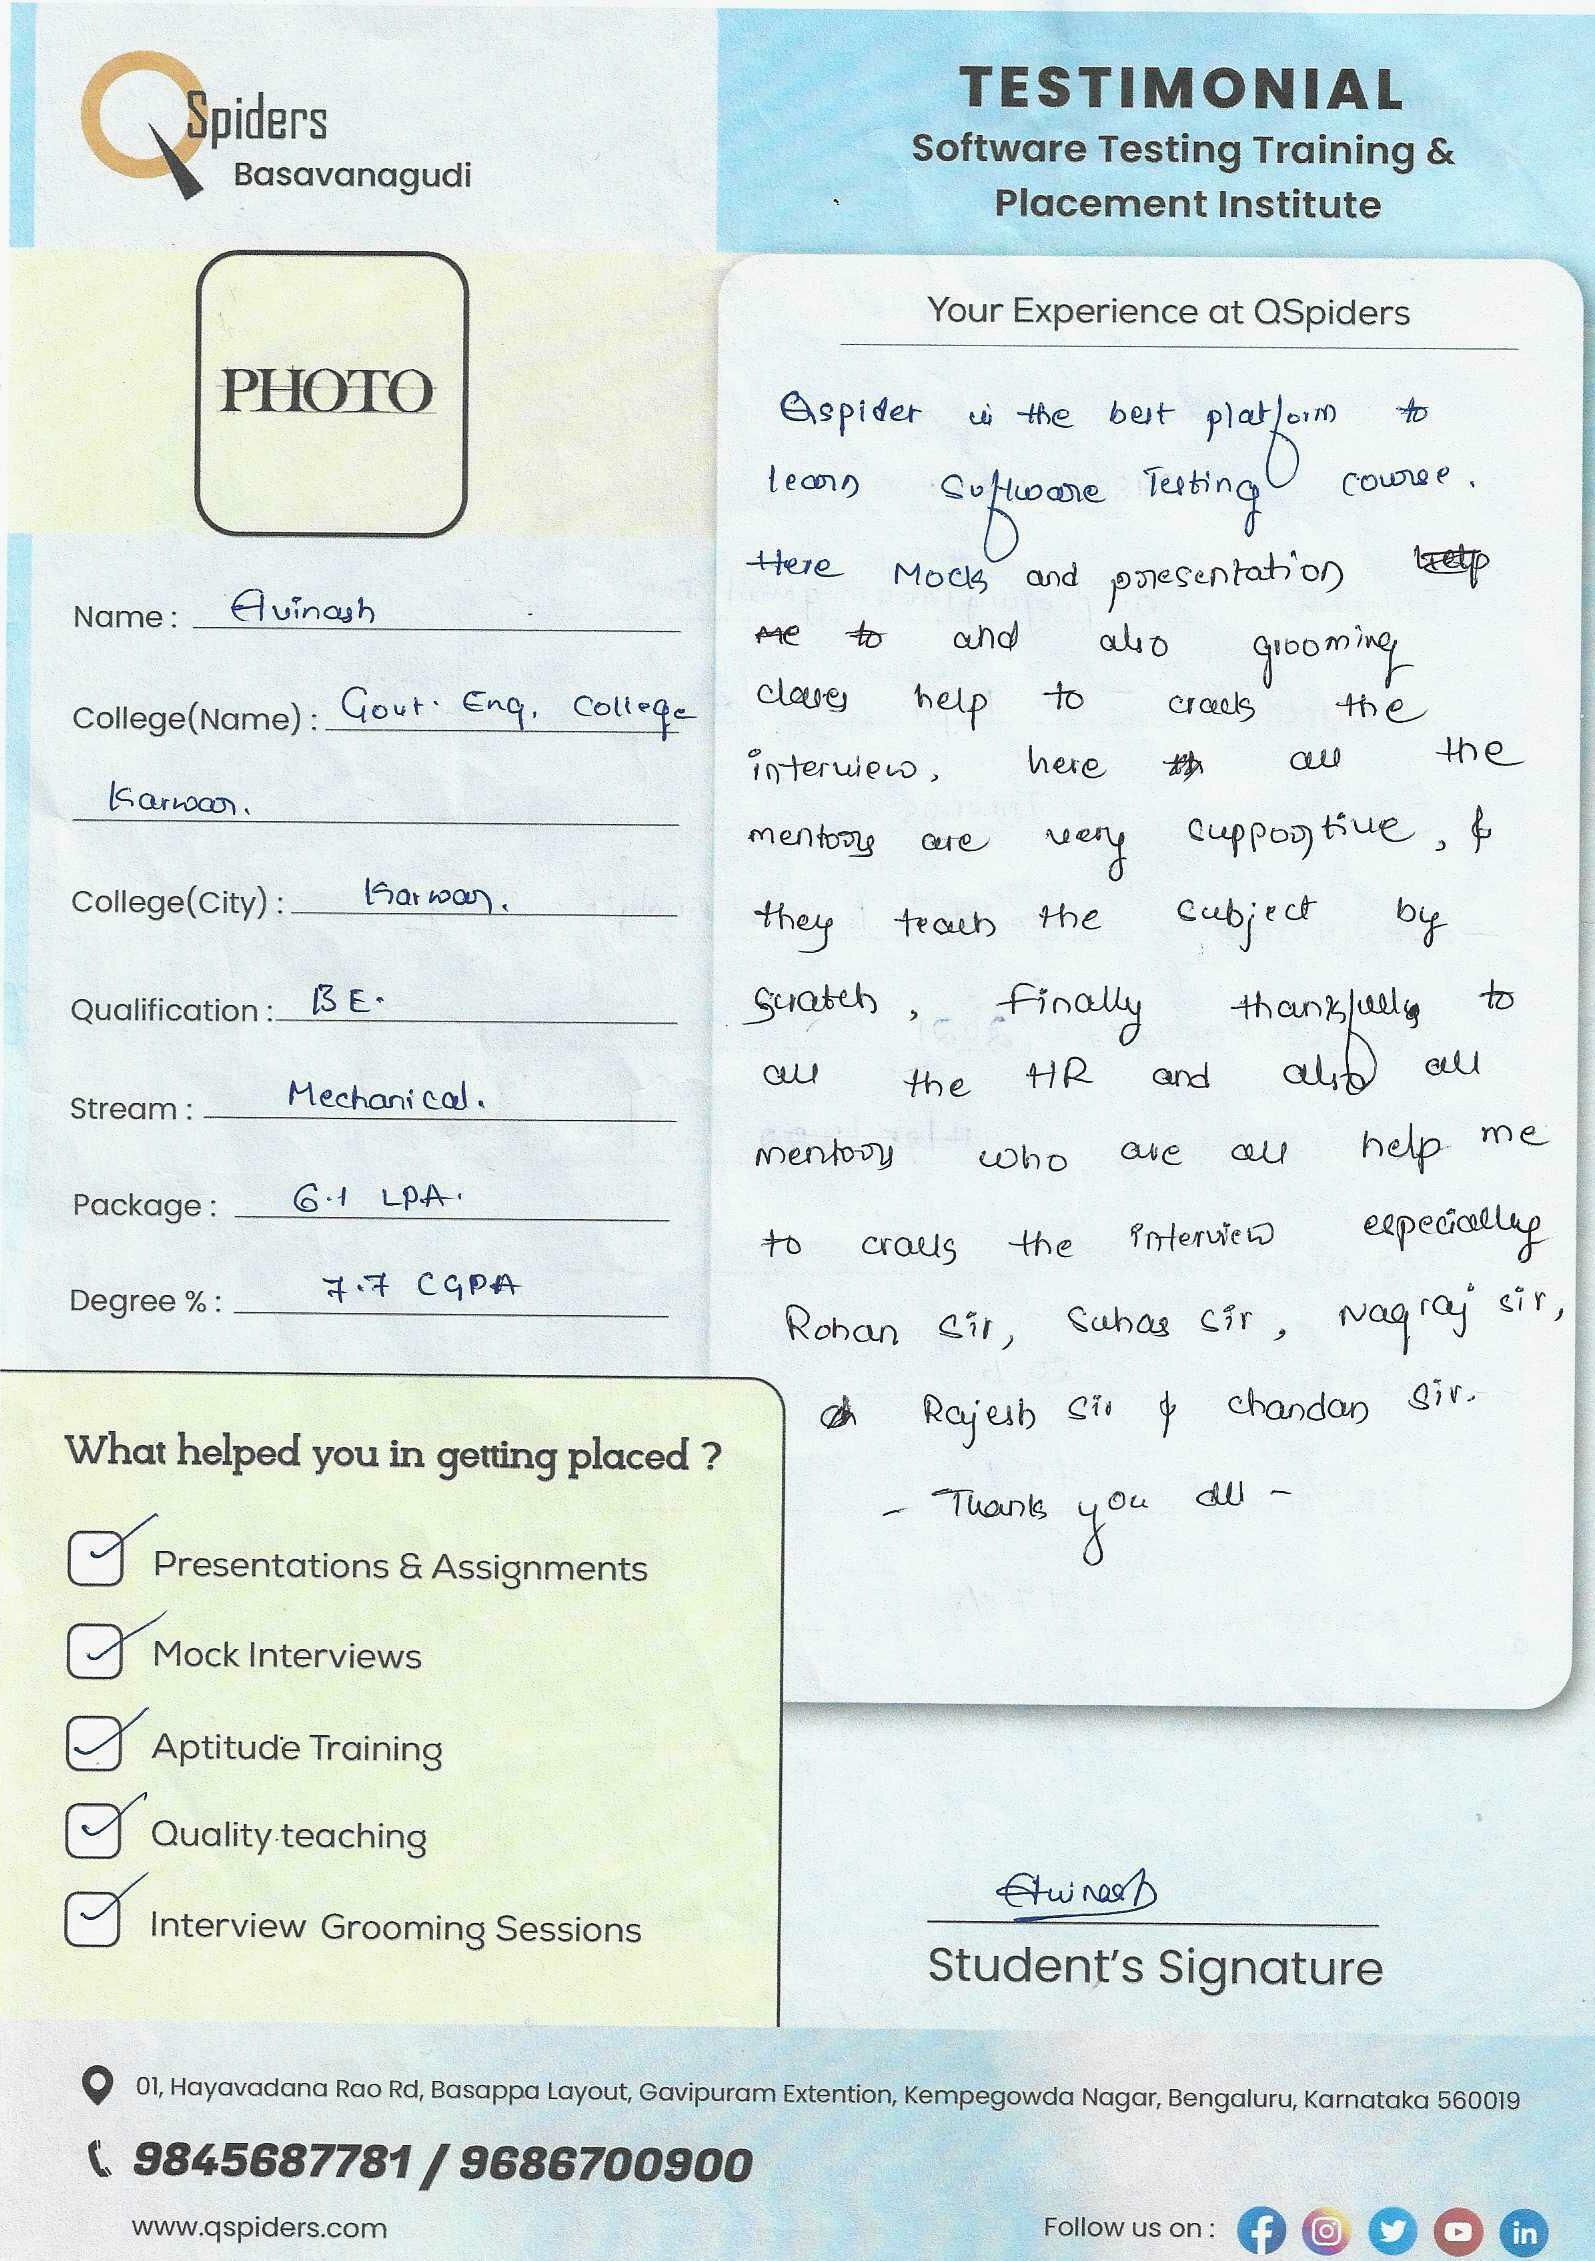 QSpiders
Basavanagudi
TESTIMONIAL
Software Testing Training &
Placement Institute
PHOTO
Name : Avinash
College(Name) : Govt. Eng. College
Karwar.
College(City) : Karwar.
Qualification : BE.
Stream : Mechanical.
Package : 6.1 LPA.
Degree % : 7.7 CGPA
Your Experience at QSpiders
Qspider is the best platform to
learn Software Testing course.
Here Mock and presentation help
me to and also grooming
classes help to crack the
interview, here all the
mentors are very supportive, &
they teach the subject by
scratch, Finally thankfully to
all the HR and also all
mentors who are all help me
to crack the interview especially
Rohan Sir, Suhas Sir, Nagraj Sir,
Rajesh Sir & Chandan Sir.
- Thank you all -
What helped you in getting placed ?
Presentations & Assignments
Mock Interviews
Aptitude Training
Quality teaching
Interview Grooming Sessions
Avinash
Student's Signature
01, Hayavadana Rao Rd, Basappa Layout, Gavipuram Extention, Kempegowda Nagar, Bengaluru, Karnataka 560019
9845687781 / 9686700900
www.qspiders.com
Follow us on :